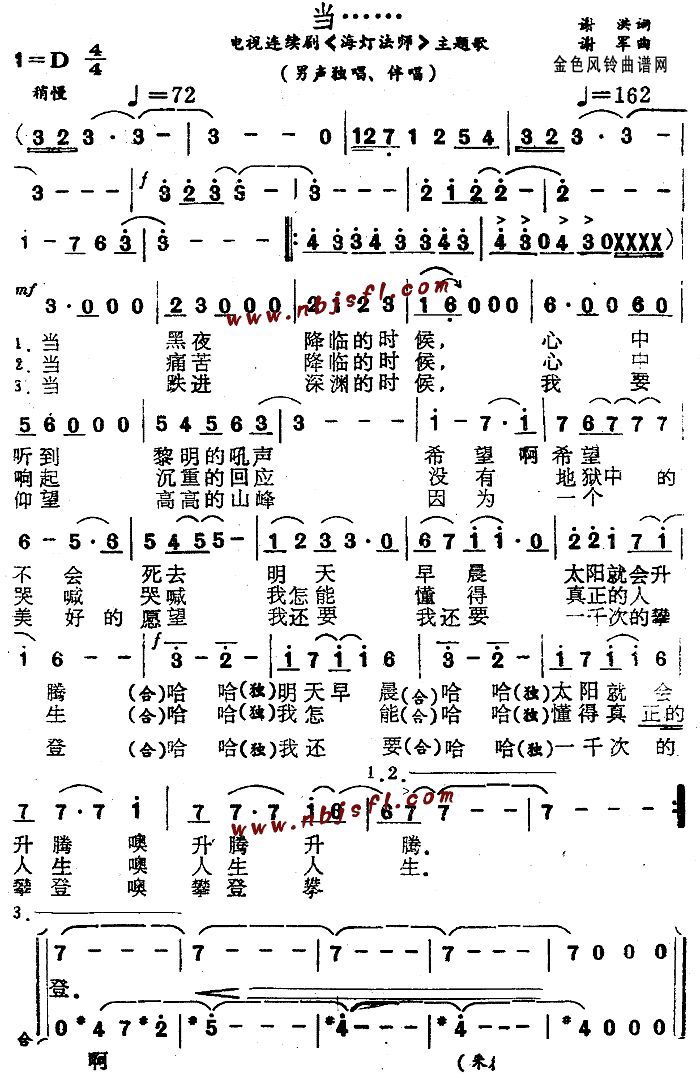 当……
电视连续剧《海灯法师》主题歌
(男声独唱、伴唱)
谢 洪词
谢 军曲
金色风铃曲谱网
1=D 4/4
稍慢 ♩=72 ♩=162
(3 2 3·3- | 3 - - 0 | 1 2 7 1 2 5 4 | 3 2 3·3-
3 - - - | f 3 2 3 3 - | 3 - - - | 2 1 2 2 - | 2 - - -
1 - 7 6 3 | 3 - - - |: 4 3 3 4 3 3 3 4 3 | 4 3 0 4 3 0 X X X X)
www.nbjsfl.com
mf 3·0 0 0 | 2 3 0 0 0 | 2 1 2 3 | 1 6 0 0 0 | 6·0 0 6 0
1.当 黑夜 降临的时候, 心 中
2.当 痛苦 降临的时候, 心 中
3.当 跌进 深渊的时候, 我 要
5 6 0 0 0 | 5 4 5 6 3 | 3 - - - | 1 - 7·1 | 7 6 7 7 7
听到 黎明的吼声 希望 啊希望
响起 沉重的回应 没有 地狱中的
仰望 高高的山峰 因为 一个
6 - 5·6 | 5 4 5 5 - | 1 2 3 3·0 | 6 7 1 1·0 | 2 2 1 7 1
不会 死去 明天 早晨 太阳就会升
哭喊 哭喊 我怎能 懂得 真正的人
美好的愿望 我还要 我还要 一千次的攀
1 6 - - | f 3 - 2 - | 1 7 1 1 6 | 3 - 2 - | 1 7 1 1 6
腾 (合)哈 哈(独)明天早 晨(合)哈 哈(独)太阳就 会
生 (合)哈 哈(独)我怎 能(合)哈 哈(独)懂得真 正的
登 (合)哈 哈(独)我还 要(合)哈 哈(独)一千次 的
1.2.
7 7·7 1 | 7 7·7 1 6 | 6 7 7 - - | 7 - - - :|
www.nbjsfl.com
升 腾 噢 升腾 升 腾.
人 生 噢 人生 人 生.
攀 登 噢 攀登 攀
3.
7 - - - | 7 - - - | 7 - - - | 7 - - - | 7 0 0 0
登.
合 0 #4 7 #2 | #5 - - - | #4 - - - | #4 - - - | #4 0 0 0
啊